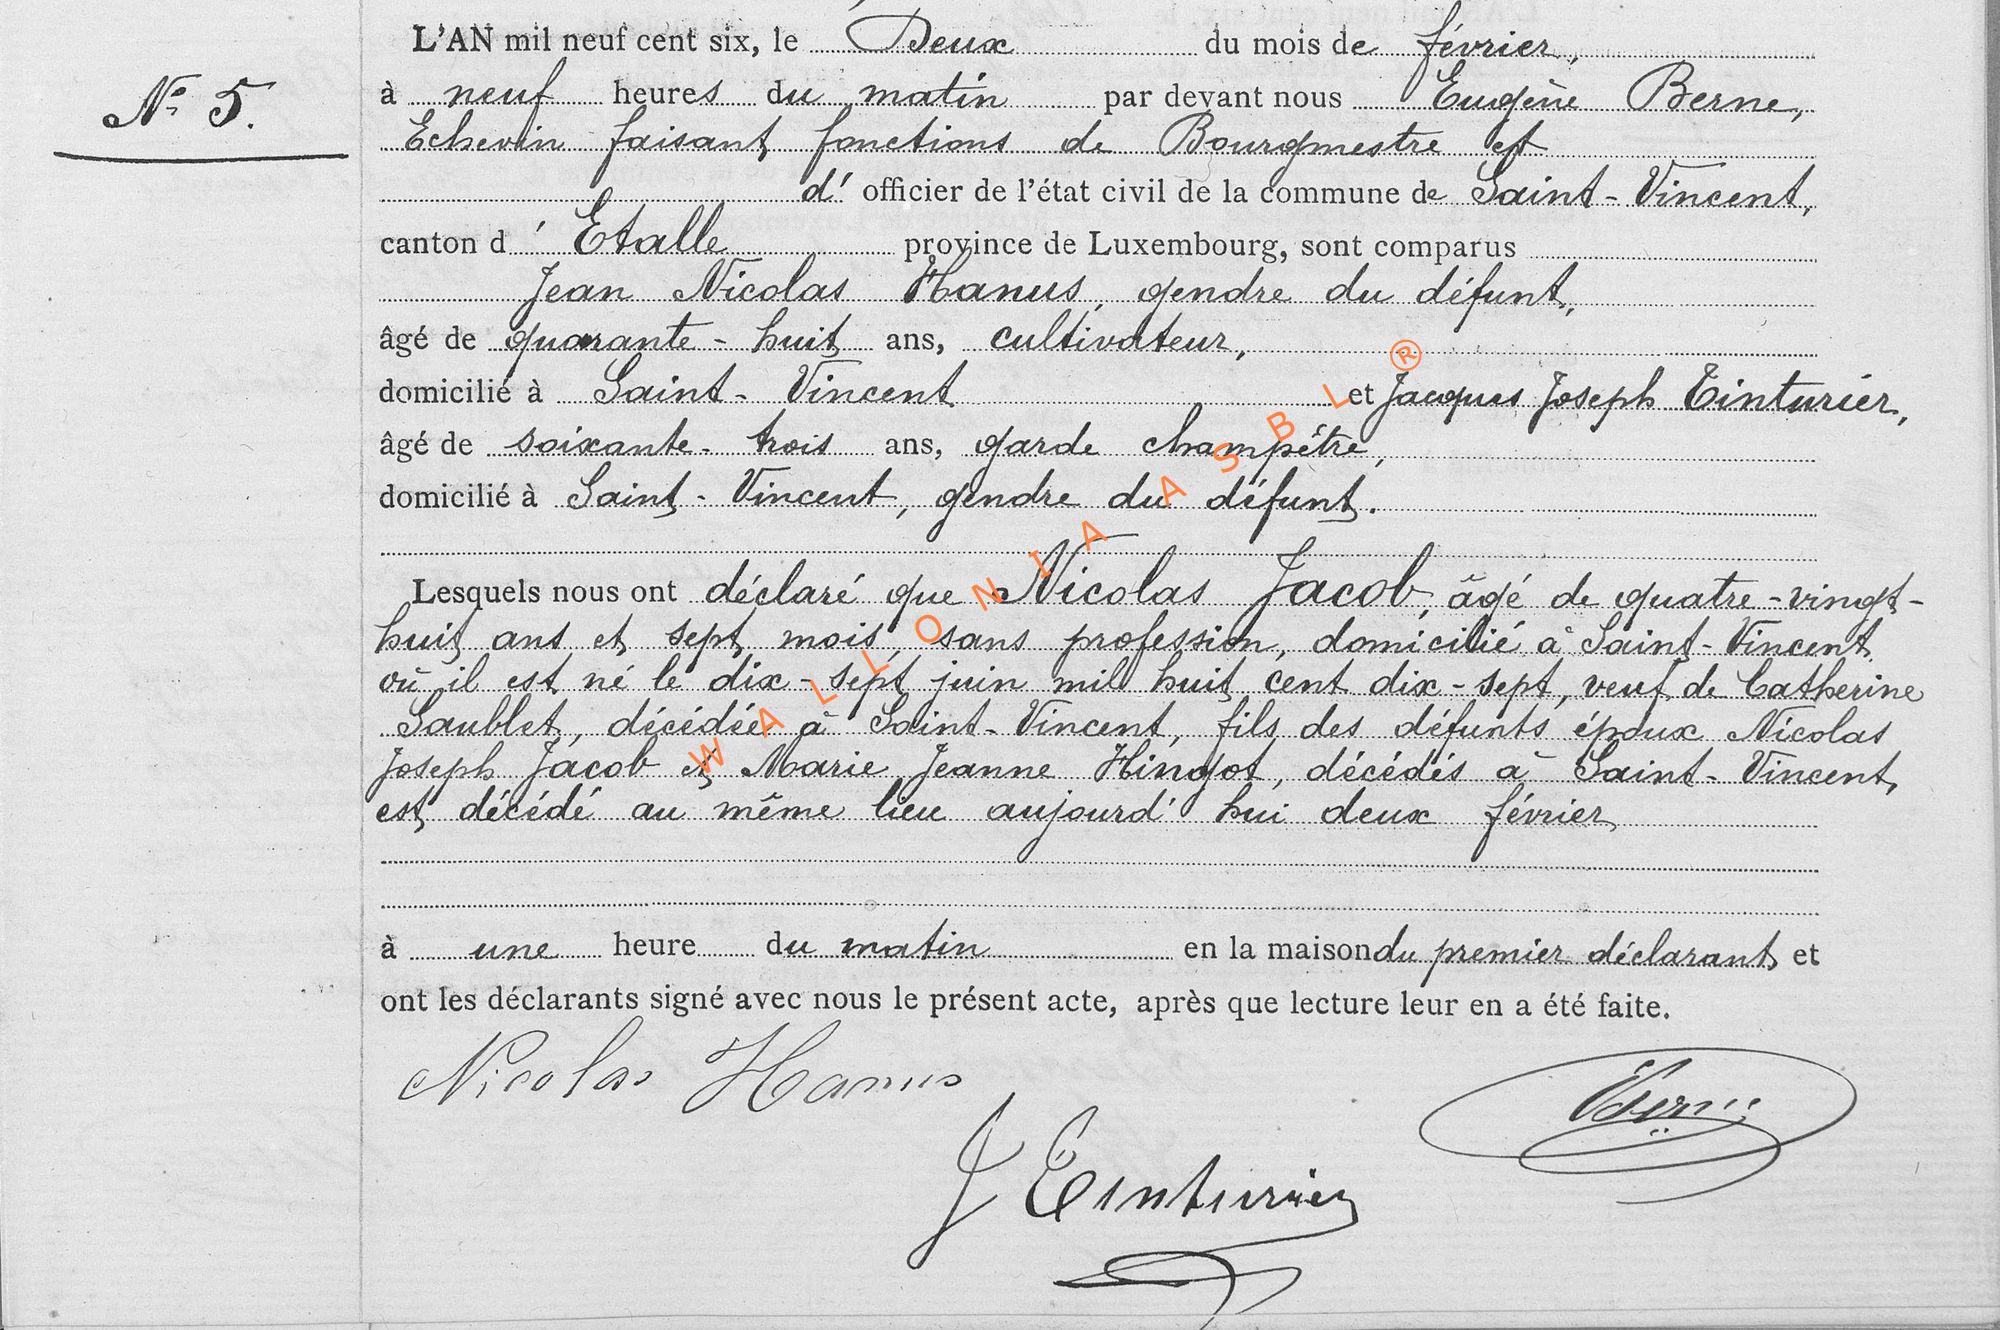 L'AN mil neuf cent six, le Deux du mois de février,
N° 5.
à neuf heures du matin par devant nous Eugène Berne,
Echevin faisant fonctions de Bourgmestre et
d' officier de l'état civil de la commune de Saint-Vincent,
canton d' Etalle province de Luxembourg, sont comparus
Jean Nicolas Hanus, gendre du défunt,
âgé de quarante-huit ans, cultivateur,
domicilié à Saint-Vincent et Jacques Joseph Tinturier,
âgé de soixante-trois ans, garde champêtre,
domicilié à Saint-Vincent, gendre du défunt.
Lesquels nous ont déclaré que Nicolas Jacob, âgé de quatre-vingt-
huit ans et sept mois, sans profession, domicilié à Saint-Vincent
où il est né le dix-sept juin mil huit cent dix-sept, veuf de Catherine
Saublet, décédée à Saint-Vincent, fils des défunts époux Nicolas
Joseph Jacob et Marie Jeanne Hingot, décédés à Saint-Vincent,
est décédé au même lieu aujourd'hui deux février
à une heure du matin en la maison du premier déclarant et
ont les déclarants signé avec nous le présent acte, après que lecture leur en a été faite.
Nicolas Hanus
Berne
J Tinturier
WALLONIA ASBL ®